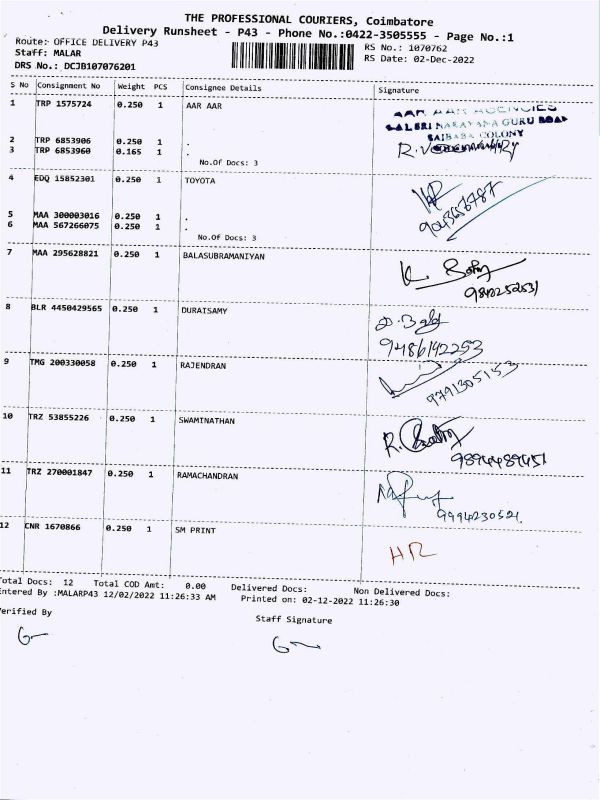 THE PROFESSIONAL COURIERS, Coimbatore
Delivery Runsheet - P43 - Phone No.:0422-3505555 - Page No.:1
Route: OFFICE DELIVERY P43
RS No.: 1070762
Staff: MALAR
RS Date: 02-Dec-2022
DRS No.: DCJB107076201
S No Consignment No Weight PCS Consignee Details Signature
1 TRP 1575724 0.250 1 AAR AAR
AAR AAR AGENCIES
NARAYANA GURU ROAD
SAIBABA COLONY
2 TRP 6853906 0.250 1 .
3 TRP 6853960 0.165 1 .
No.Of Docs: 3
4 EDQ 15852301 0.250 1 TOYOTA
5 MAA 300003016 0.250 1 .
6 MAA 567266075 0.250 1 .
No.Of Docs: 3
7 MAA 295628821 0.250 1 BALASUBRAMANIYAN
8 BLR 4450429565 0.250 1 DURAISAMY
9486142253
9 TMG 200330058 0.250 1 RAJENDRAN
9791305153
10 TRZ 53855226 0.250 1 SWAMINATHAN
9894489451
11 TRZ 270001847 0.250 1 RAMACHANDRAN
9994230521
12 CNR 1670866 0.250 1 SM PRINT
HR
Total Docs: 12 Total COD Amt: 0.00 Delivered Docs: Non Delivered Docs:
Entered By :MALARP43 12/02/2022 11:26:33 AM Printed on: 02-12-2022 11:26:30
Verified By
Staff Signature